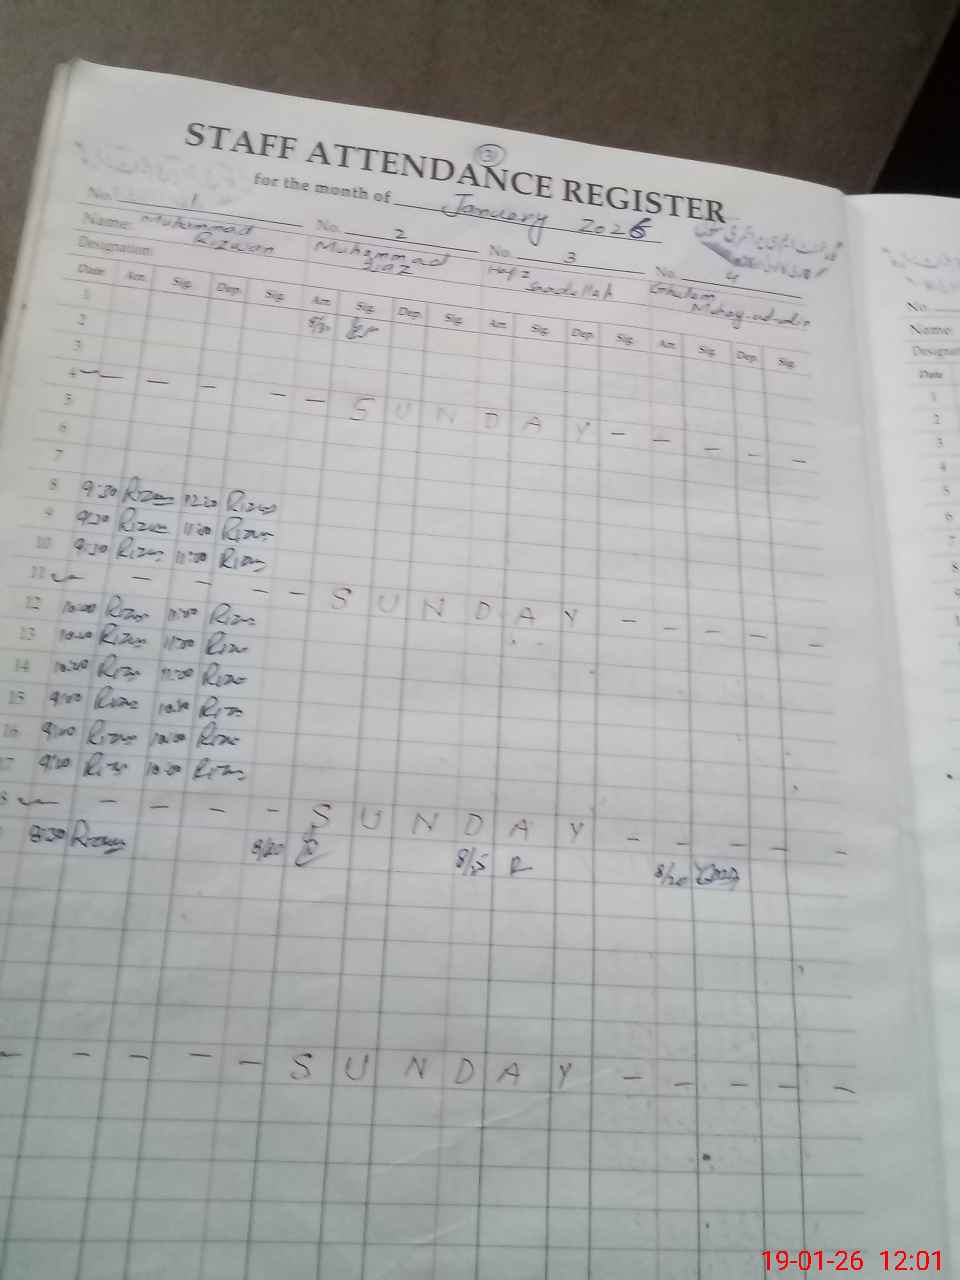 3
STAFF ATTENDANCE REGISTER
for the month of January 2026
No. 1 No. 2 No. 3 No. 4
Name: Muhammad Rizwan Muhammad Hafiz Saadullah Ghulam Muhay-ud-din
Designation:
Date Arr. Sig. Dep. Sig. Arr. Sig. Dep. Sig. Arr. Sig. Dep. Sig. Arr. Sig. Dep. Sig.
1
2 8/30
3
4 — — — — — — S U N D A Y — — — — —
5
6
7
8 9:30 Rizwan 12:00 Rizwan
9 9:30 Rizwan 11:00 Rizwan
10 9:30 Rizwan 11:00 Rizwan
11 — — — — — S U N D A Y — — — — —
12 10:00 Rizwan 11:00 Rizwan
13 10:00 Rizwan 11:00 Rizwan
14 10:00 Rizwan 11:00 Rizwan
15 9:00 Rizwan 10:30 Rizwan
16 9:00 Rizwan 10:00 Rizwan
17 9:00 Rizwan 10:00 Rizwan
8 — — — — — S U N D A Y — — — — —
8:30 Rizwan 8/20 8/15 8/20
— — — — — S U N D A Y — — — — —
No.
Name:
Designat
Date
1
2
3
4
5
6
7
8
19-01-26 12:01